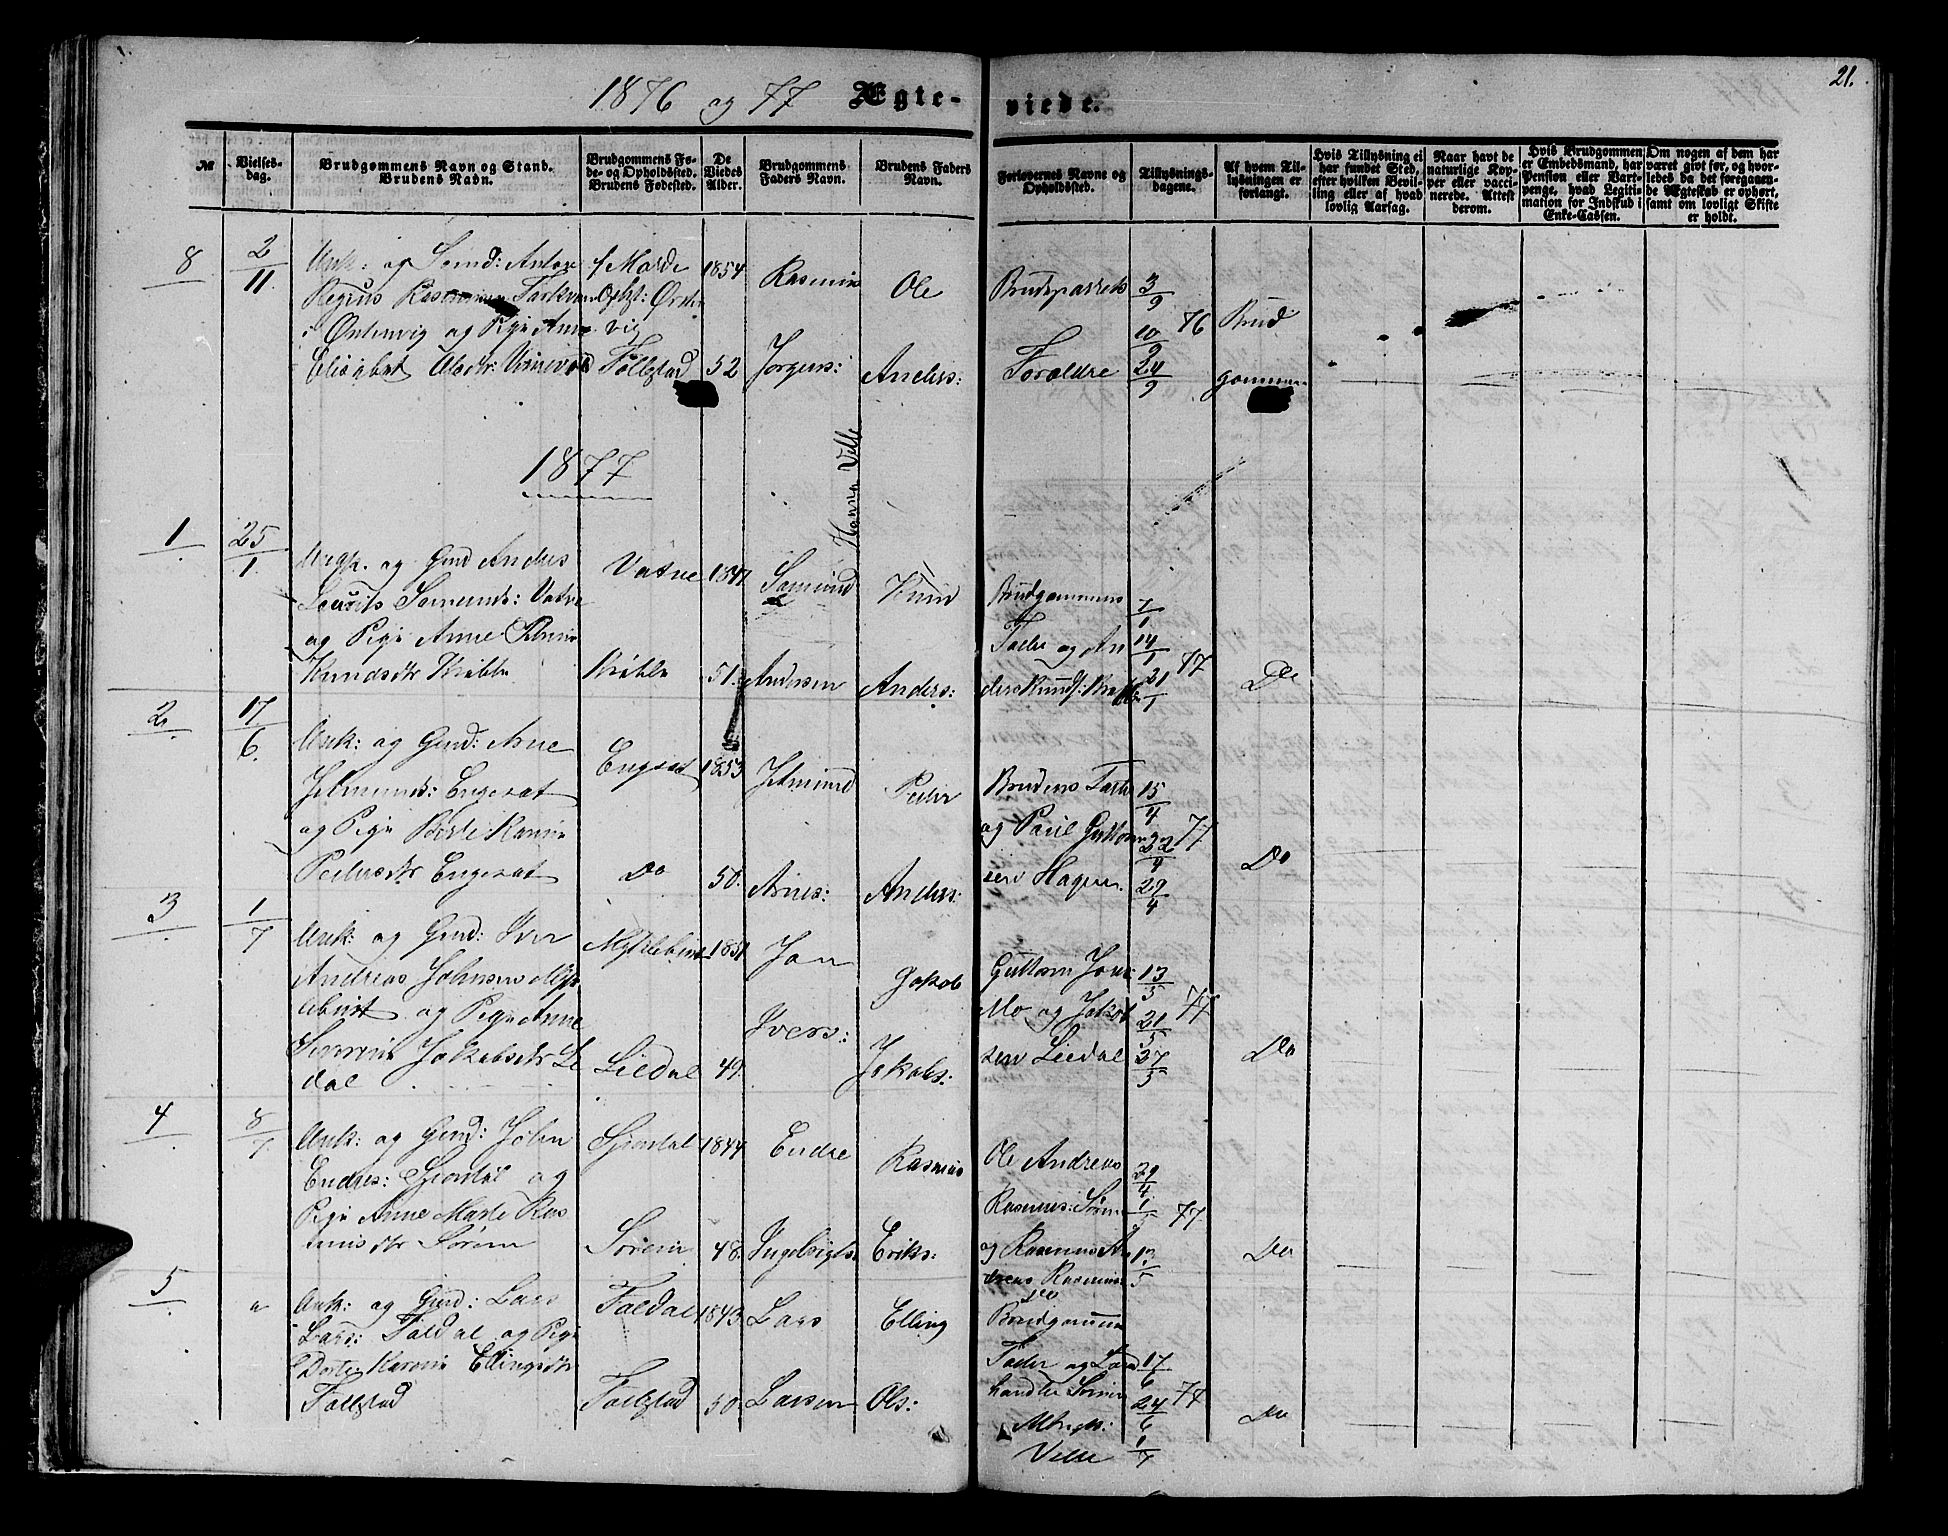 1876 og 77 Ægte-
viede.
21.
№
Vielses-
dag.
Brudgommens Navn og Stand.
Brudens Navn.
Brudgommens Fø-
de- og Opholdssted.
Brudens Fødested.
De
Viedes
Alder.
Brudgommens
Faders Navn.
Brudens Faders
Navn.
Forlovernes Navne og
Opholdssted.
Tillysnings-
dagene.
Af hvem Til-
lysningen er
forlangt.
Hvis Tillysning ei
har fundet Sted,
efter hvilken Bevil-
ling eller af hvad
lovlig Aarsag.
Naar havt de
naturlige Kop-
per eller vacci-
nerede. Attest
derom.
Hvis Brudgommen
er Embedsmand, har
Pension eller Vart-
penge, hvad Legiti-
mation for Indskud i
Enke-Cassen.
Om nogen af dem har
været givt før, og hvor-
ledes da det foregaaen-
de Ægteskab er ophørt,
samt om lovligt Skifte
er holdt.
8
2/11
Unk: og Anton
og Pige Anne
Elisabet Olsdtr:
1854
52
Rasmus
Jørgens:
Ole
Anders:
Forældre
3/9
10/9
24/9
76
Brud
gommen
1877
Hanna Velle
1
25/1
Ungk. og Gmd Anders
Laurits Samunds: Vatne
og Pige Anne
Knudsdtr
Vatne
1847
51.
Samund
Andersen
Knud
Anders:
Brudgommens
Fader og An
ders Knuds:
7/1
14/1
21/1
77
Do
2.
17/6
Unk: og Gmd: Arne
Jetmunds: Engeset
og Pige Berte Karine
Pedersdtr Engeset
Engeset
Do
1853
50.
Jetmund
Arnes:
Peder
Anders:
Brudens Fader
og Paul Guttorm
sen Hagen
15/4
22/4
29/4
77
Do
3
1/7
Unk: og Gmd: Iver
Andreas Johnsen Myk
lebust og Pige Anne
Severine Jakobsdtr Li
dal
Myklebust
Liedal
1851
49.
Jon
Ivers:
Jakob
Jakobs:
Guttorm Jons:
Mo og Jakob
sen Liedal
13/5
21/5
27/5
77
Do
4
8/7
Unk: og Gmd: John
Endres: og
Pige Anne Marte Ras
musdtr Sørem
1844
48.
Endre
Ingebrigts:
Rasmus
Eriks:
Ole Andreas
Rasmus: Sørem
og Rasmus An
dreas Rasmus
sen
29/4
77
Do
5
"
Unk: og Gmd: Lars
Lars: Faldal og Pige
Dorte Karoline Ellingsdtr
Follestad
Faldal
Follestad
1843
50.
Lars
Larsen
Elling
Ols:
Brudgommens
Fader og Land
handler
Velle
17/6
24/6
1/7
77
Do